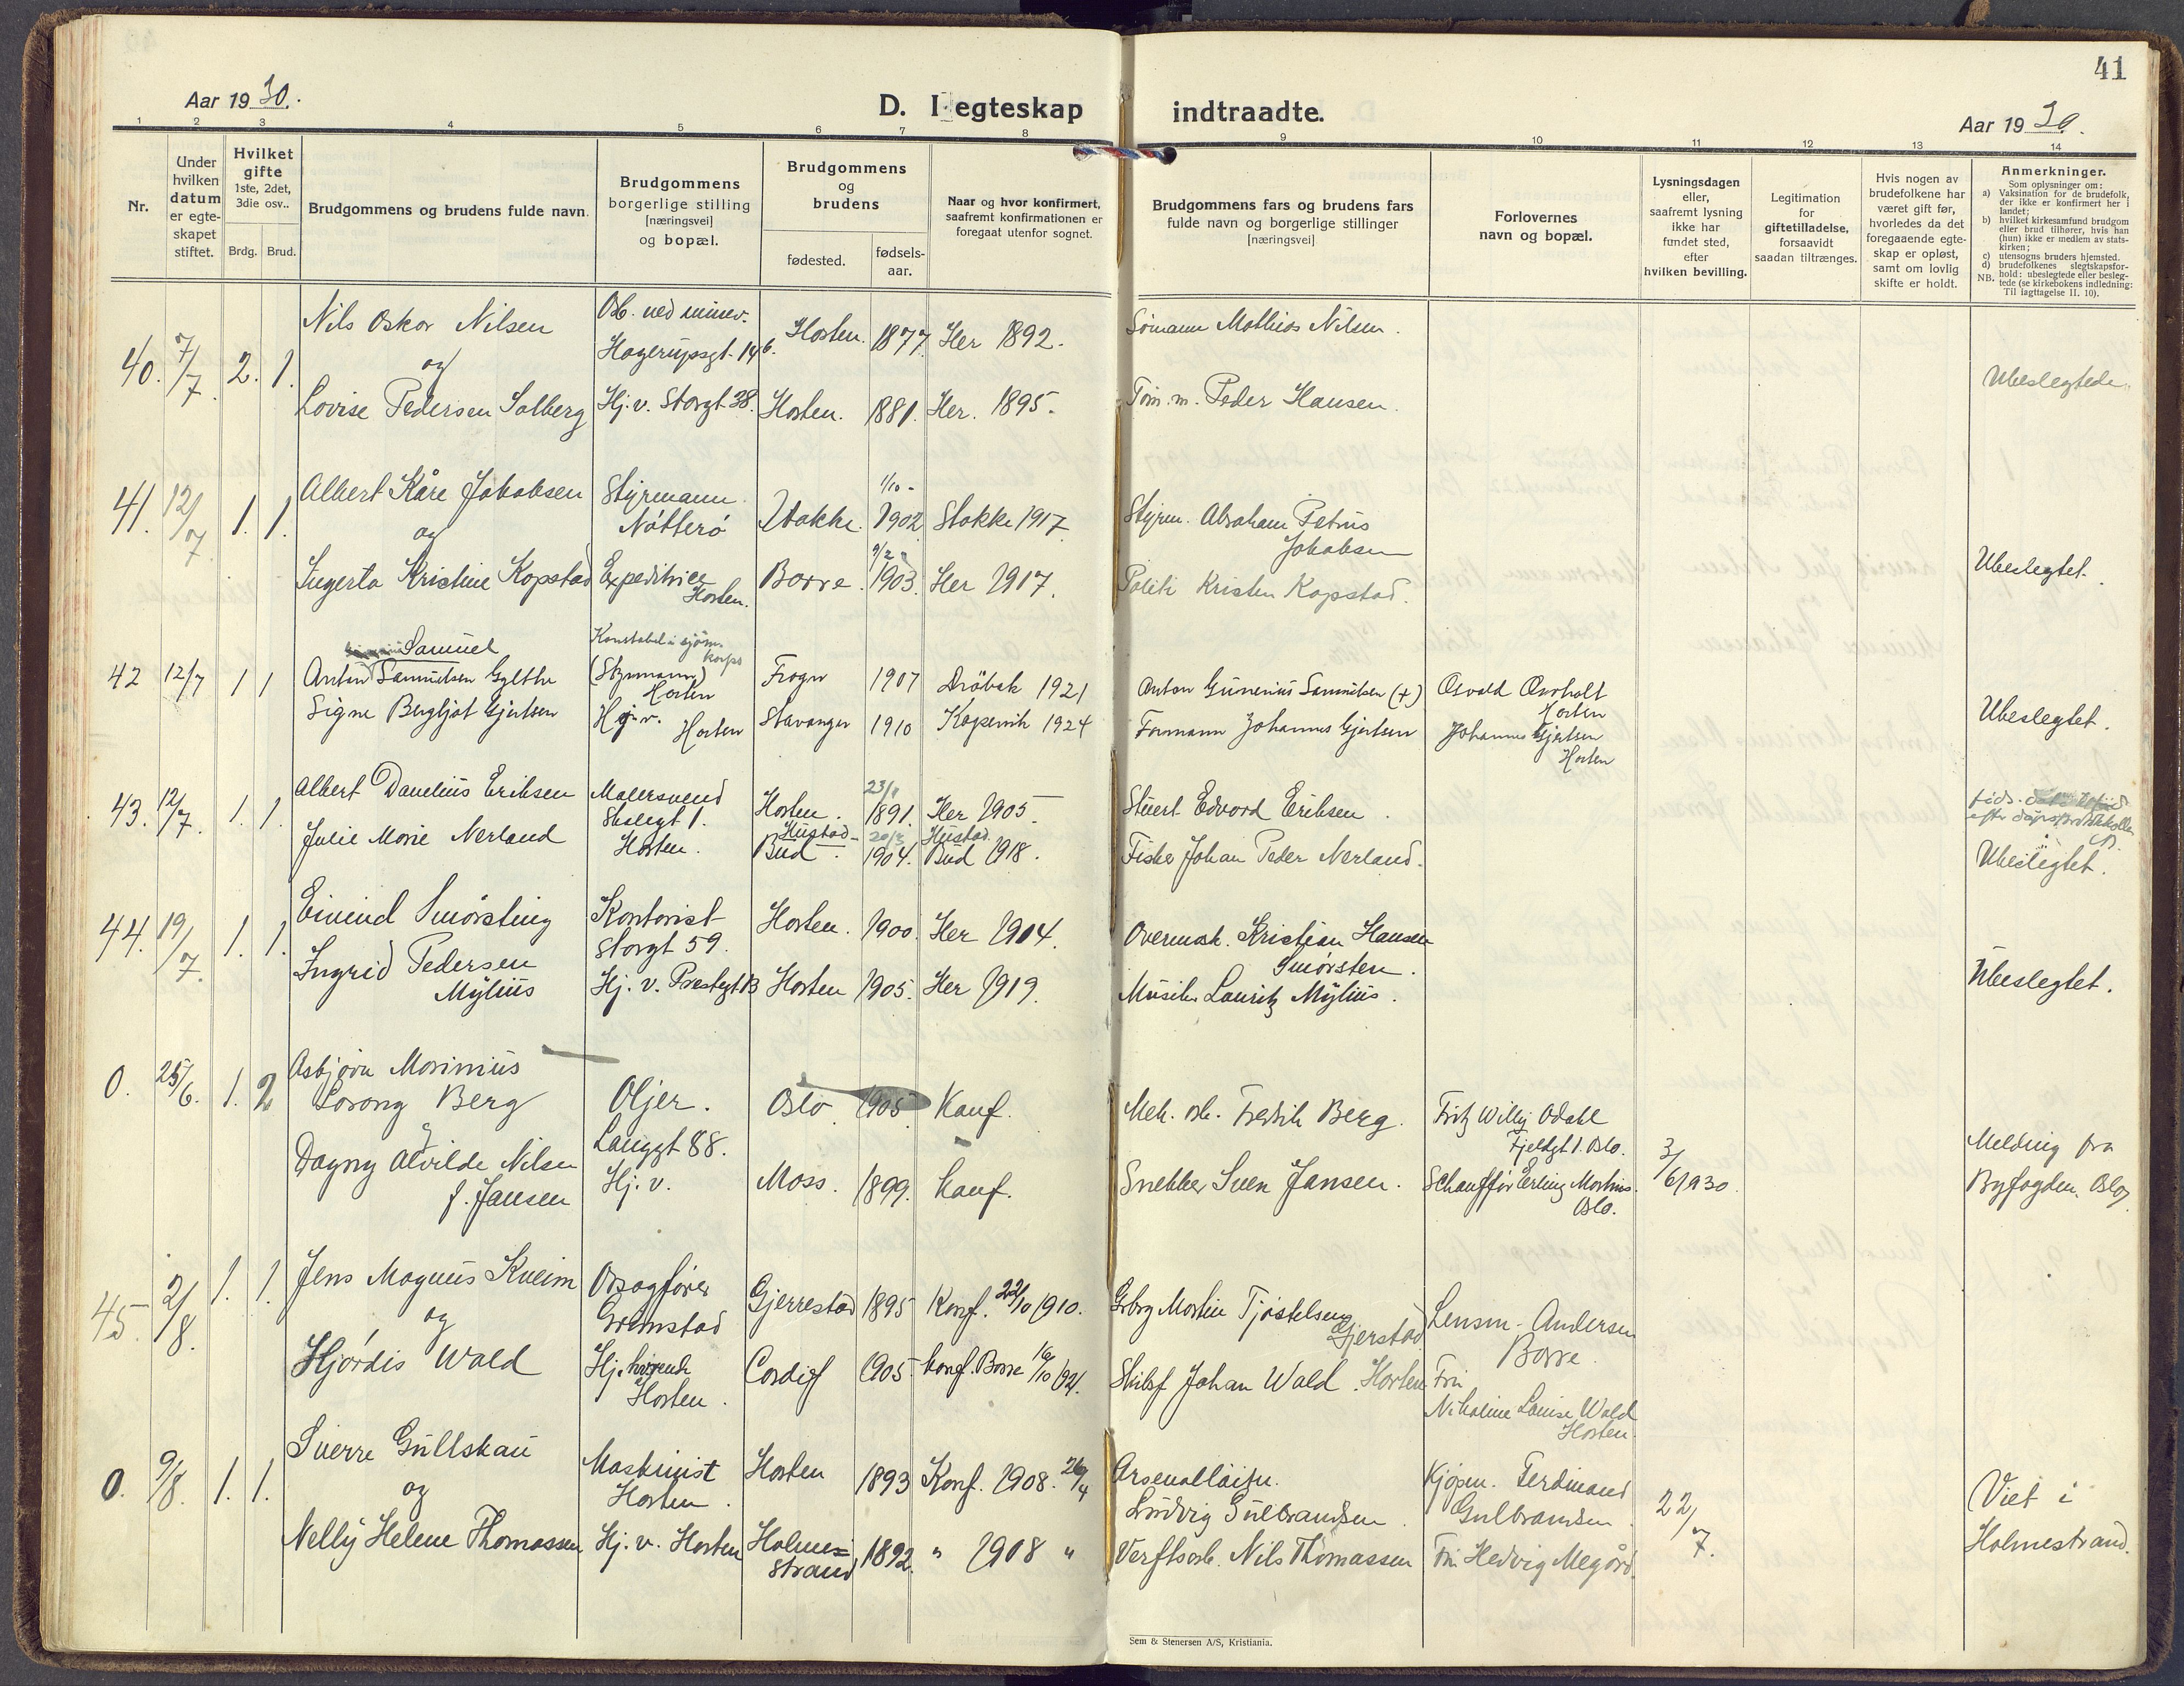 41
Aar 1930.
D. I egteskap indtraadte.
Aar 1930.
1 2 3 4 5 6 7 8 9 10 11 12 13 14
Nr.
Under hvilken datum er egteskapet stiftet.
Hvilket gifte
1ste, 2det, 3die osv..
Brdg. Brud.
Brudgommens og brudens fulde navn.
Brudgommens borgerlige stilling [næringsvei] og bopæl.
Brudgommens og brudens
fødested. fødsels-aar.
Naar og hvor konfirmert, saafremt konfirmationen er foregaat utenfor sognet.
Brudgommens fars og brudens fars fulde navn og borgerlige stillinger [næringsvei]
Forlovernes navn og bopæl.
Lysningsdagen eller, saafremt lysning ikke har fundet sted, efter hvilken bevilling.
Legitimation for giftetilladelse, forsaavidt saadan tiltrænges.
Hvis nogen av brudefolkene har været gift før, hvorledes da det foregaaende egteskap er opløst, samt om lovlig skifte er holdt.
Anmerkninger.
Som oplysninger om:
a) Vaksination for de brudefolk, der ikke er konfirmert her i landet;
b) hvilket kirkesamfund brudgom eller brud tilhører, hvis han (hun) ikke er medlem av statskirken;
c) utensogns bruders hjemsted.
d) brudefolkenes slegtskapsforhold: ubeslegtede eller beslegtede (se kirkebokens indledning: Til iagttagelse II. 10).
NB.
40. 7/7. 2. 1. Nils Oskar Nilsen
Arb. ved minev. Hagerupsgt. 146. Horten. 1877 Her 1892. Sømann Mathias Nilsen.
og
Lovise Pedersen Solberg Hj. v. Storgt. 38. Horten. 1881. Her. 1895. Tøm.m. Peder Hansen.
Ubeslegtede.
41. 12/7 1. 1. Albert Kåre Jakobsen Styrmann Nøtterö Stokke. 1/10 - 1902 Stokke 1917 Styrm. Abraham Petrus Jakobsen
og
Ingerta Kristine Kopstad Expeditrice Horten. Borre. 9/2 1903. Her 1917. Politi Kristen Kopstad.
Ubeslegtet.
42 12/7 1 1 Samuel
Anton Samuelsen Gylthe Konstabel i sjøm. korps (Styrmann) Horten Frogn 1907 Drøbak 1921 Anton Gunerius Samuelsen (+) Osvald Horten
Signe Bergljot Gjertsen Hj. v. Horten Stavanger 1910 Kopervik 1924 Formann Johannes Gjertsen Johannes Gjertsen Horten
Ubeslegtet.
43. 12/7. 1. 1. Albert Danelius Eriksen Malersvend 1. Horten. 23/1 1891. Her 1905 Stuert Edvard Eriksen.
Julie Marie Nerland Horten. Hustad Bud. 20/3 1904. Hustad Bud 1918. Fisker Johan Peder Nerland.
føds.
efter dåpsprotokollen
Ubeslegtet.
44. 19/7. 1. 1. Eivind Smørsting Kontorist Storgt 59. Horten. 1900. Her 1914. Overmask. Kristian Hansen Smørsten.
Ingrid Pedersen Mylius Hj. v. Prestegt 13 Horten 1905. Her 1919. Musiker Lauritz Mylius.
Ubeslegtet.
0. 25/6. 1. 2 Asbjørn Marinius Lorang Berg Oljer. Langgt 88. Oslo 1905 Konf. Mek. arb. Fredrik Berg. Fritz Willy Odahl Fjeldgt 1. Oslo.
og
Dagny Alvilde Nilsen f. Jansen Hj. v. Moss. 1899. Konf. Snekker Sven Jansen. Schauffør Erling Oslo. 3/6 1930.
Melding fra Byfogden. Oslo
45. 2/8. 1. 1. Jens Magnus Kveim Grimstad Gjerrestad 1895 Konf. 22/10 1910. Grbrg Martin Tjøstelsen Gjerstad Lensm. Andersen Borre.
og
Hjørdis Wald Hj. Horten. Cardif 1905 Konf. Borre 16/10 1921. Skibsf Johan Wald. Horten Fru Nikoline Louise Wald Horten
0. 9/8. 1. 1. Sverre Gullskau Maskinist Horten. Horten 1893 Konf. 1908. 26/4 Arsenalløitn. Ludvig Gulbrandsen. Kjøpm. Ferdinand Gulbrandsen. 22/7.
og
Nelly Helene Thomassen Hj. v. Horten Holmestrand 1892. " 1908 " Verftsarb. Nils Thomassen Fru Hedvig Megård.
Viet i Holmestrand.
Sem & Stenersen A/S, Kristiania.